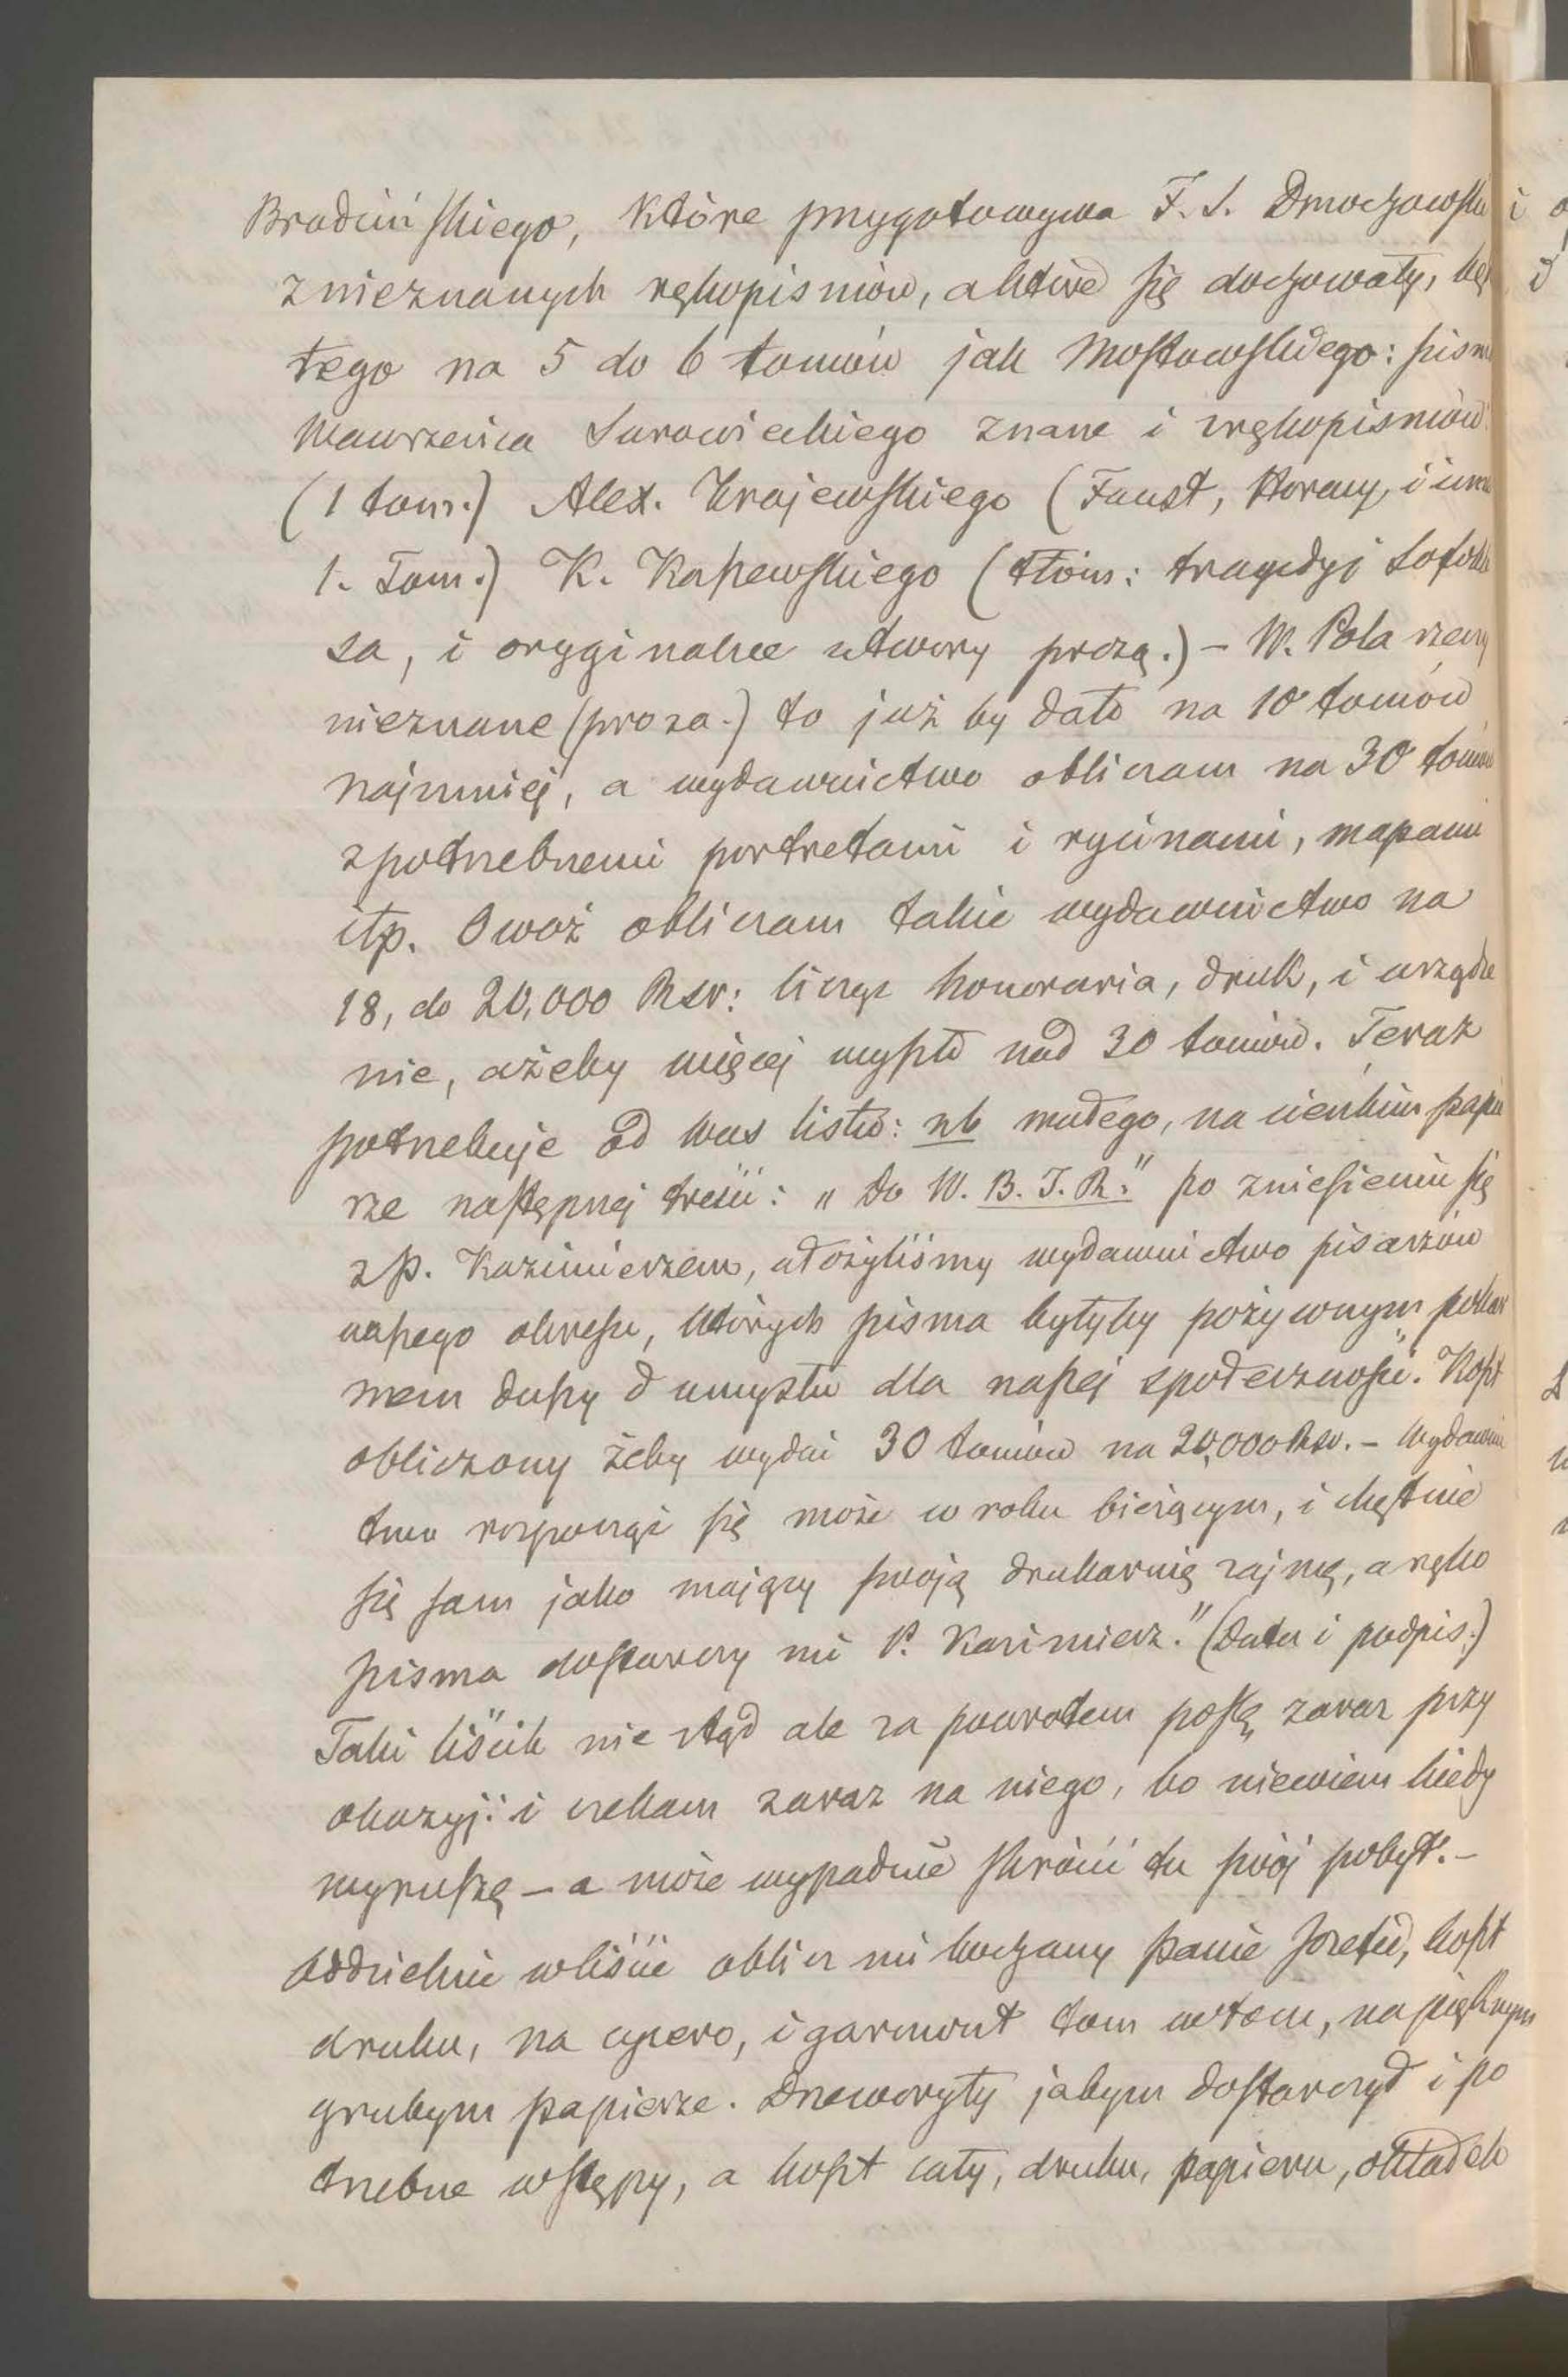 Brodzińskiego, które przygotowywa F. S. Dmochowski
z nieznanych rękopismów, a które się dochowały, bę
tego na 5 do 6 tomów jak Mostowskiego: pism
Wawrzeńca Surowieckiego znane i z rękopismów
(1 tom.) Alex. Krajewskiego (Faust, Horacy, i inne
1. Tom.) K. Kaszewskiego (tłóm: tragedyj Sofokle
sa, i oryginalne utwory prozą.) – W. Pola rzeczy
nieznane (proza.) to już by dało na 10 tomów
najmniej, a wydawnictwo obliczam na 30 tomów
z potrzebnemi portretami i rycinami, mapami
itp. Owoż obliczam takie wydawnictwo na
18, do 20,000 Rsr: licząc honoraria, druk, i urządze
nie, ażeby więcej wyszło nad 30 tomów. Teraz
potrzebuje od Was listu: nb małego, na cienkim papie
rze następnej treści: „Do W. B. I. R." po zniesieniu się
z P. Kazimierzem, ułożyliśmy wydawnictwo pisarzów
naszego okresu, których pisma byłyby pożywnym pokar
mem duszy i umysłu dla naszej społeczności. Koszt
obliczony żeby wydać 30 tomów na 20,000 Rsr. – Wydawnic
two rozpocząć się może w roku bieżącym, i chętnie
się sam jako mający swoją drukarnię zajmę, a ręko
pisma dostarczy mi P. Kazimierz." (Data i podpis.)
Taki liścik nie stąd ale za powrotem poszlę zaraz przy
okazyji i czekam zaraz na niego, bo niewiem kiedy
wyruszę – a może wypadnie skrócić tu swój pobyt. –
Oddzielnie w liście oblicz mi kochany Panie Józefie, koszt
druku, na cycero, i garmont tom w tom, na pięknym
grubym papierze. Drzeworyty jabym dostarczył i po
trzebne wstępy, a koszt cały, druku, papieru, okładek